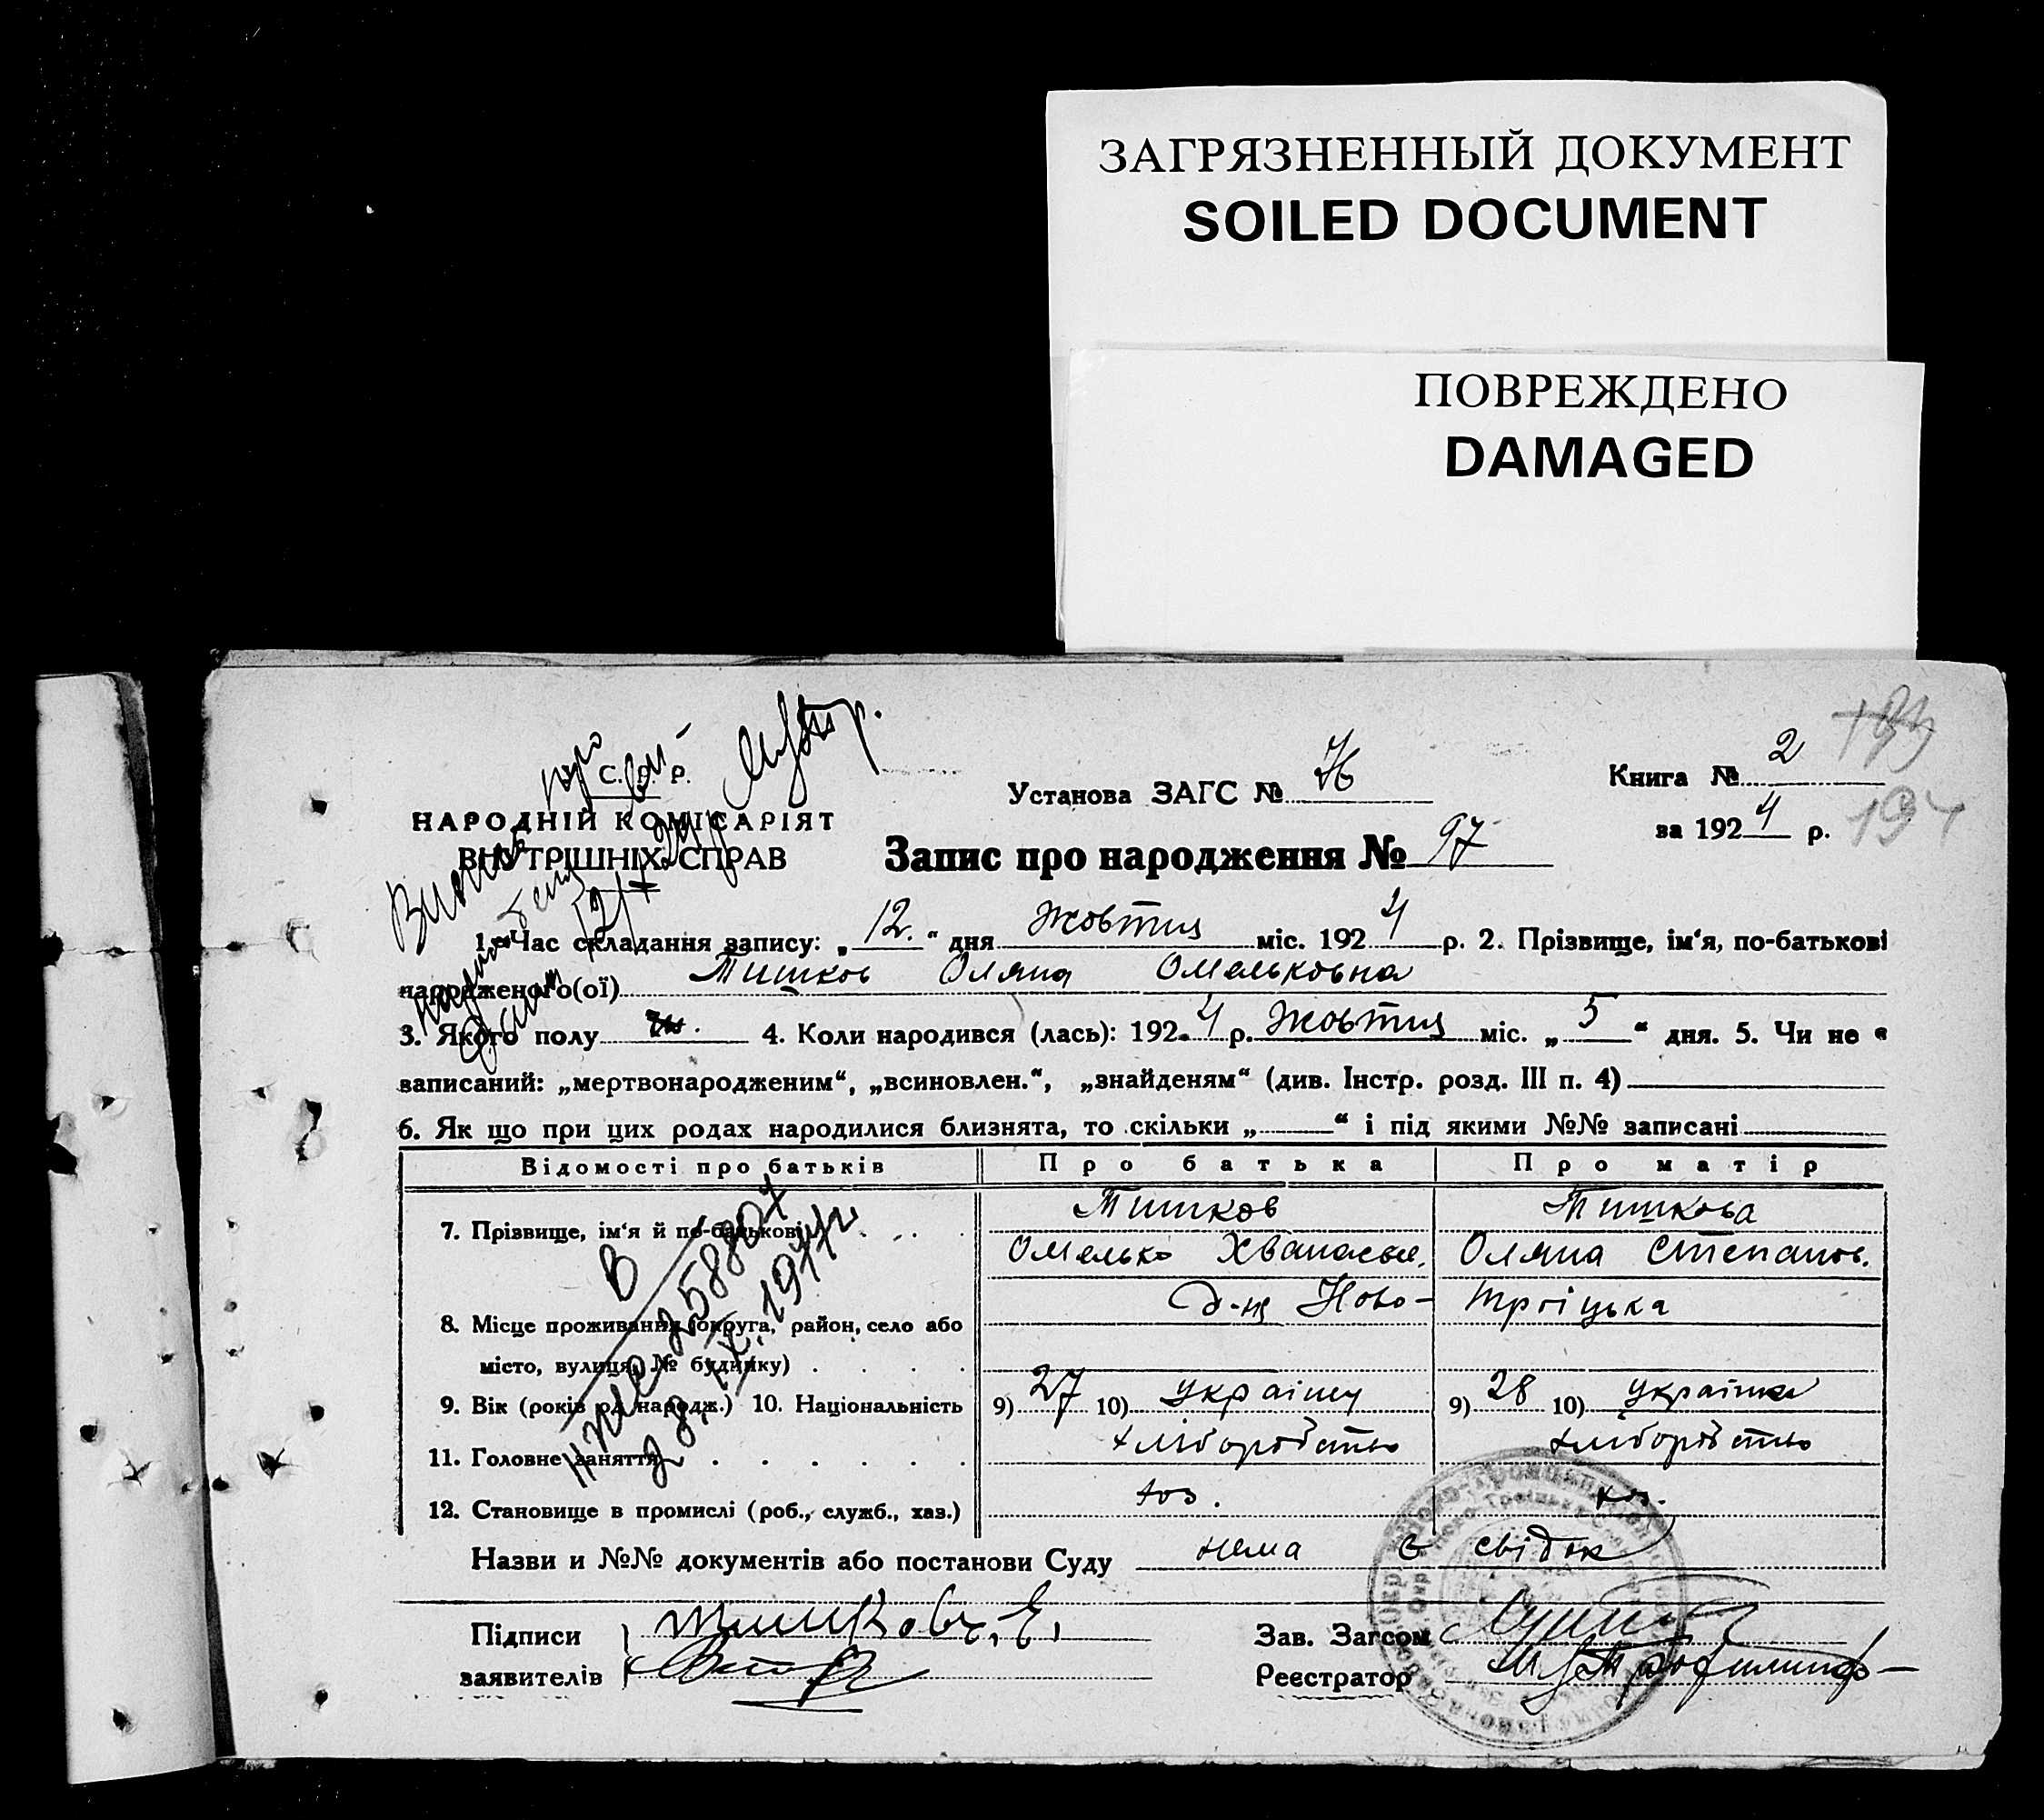 ЗАГРЯЗНЕННЫЙ ДОКУМЕНТ
SOILED DOCUMENT
ПОВРЕЖДЕНО
DAMAGED
С. Р.
НАРОДНІЙ КОМІСАРІЯТ
ВНУТРІШНІХ СПРАВ
Установа ЗАГС №
Книга № 2
за 1924 р.
194
Запис про народження № 97
1. Час складання запису: „12." дня жовтня міс. 1924 р. 2. Прізвище, ім'я, по-батькові
народженого(ої) Тишков Оляна Омельковна
3. Якого полу ж. 4. Коли народився (лась): 1924 р. жовтня міс. „5" дня. 5. Чи не є
записаний: „мертвонародженим", „всиновлен.", „знайденям" (див. Інстр. розд. III п. 4)
6. Як що при цих родах народилися близнята, то скільки „ " і під якими №№ записані
Відомості про батьків Про батька Про матір
7. Прізвище, ім'я й по-батькові Тишков Тишкова
Омелько Хванасьев. Оляна Степанов.
д-ня Ново- Троіцька
8. Місце проживання (округа, район, село або
місто, вулиця, № будинку)
9. Вік (років од народж.) 10. Національність 9) 27 10) украінец 9) 28 10) украінка
11. Головне заняття хліборобство хліборобство
12. Становище в промислі (роб., служб., хаз.) хоз. хоз.
Назви и №№ документів або постанови Суду нема є свідок
Підписи Тишковъ, Е.
заявителів
Зав. Загсом
Реєстратор